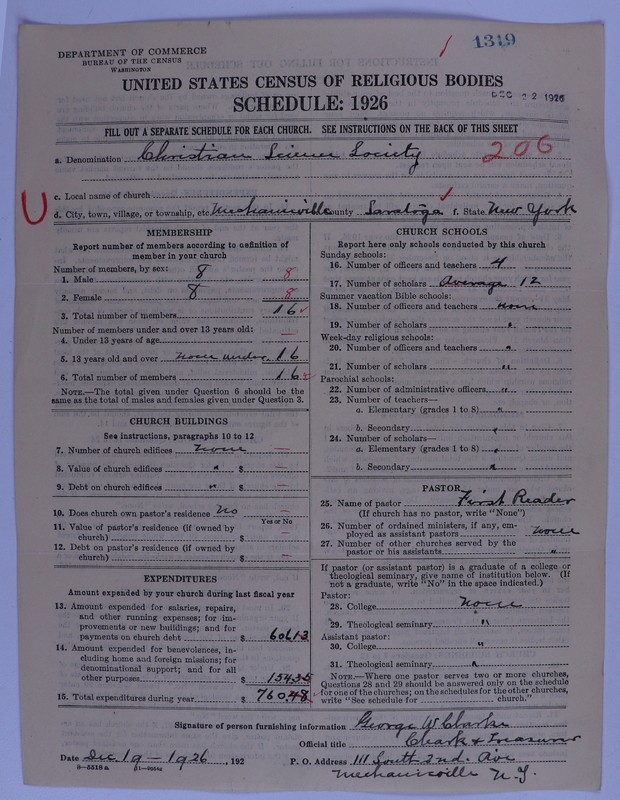 1319
DEPARTMENT OF COMMERCE
BUREAU OF THE CENSUS
WASHINGTON
UNITED STATES CENSUS OF RELIGIOUS BODIES
DEC 22 1926
SCHEDULE: 1926
FILL OUT A SEPARATE SCHEDULE FOR EACH CHURCH. SEE INSTRUCTIONS ON THE BACK OF THIS SHEET
a. Denomination Christian Science Society 206
c. Local name of church
U
d. City, town, village, or township, etc. Mechanicville County Saratoga f. State New York
MEMBERSHIP
Report number of members according to definition of
member in your church
Number of members, by sex:
1. Male 8 8
2. Female 8 8
3. Total number of members 16
Number of members under and over 13 years old:
4. Under 13 years of age —
5. 13 years old and over none under 16
6. Total number of members 16
NOTE.—The total given under Question 6 should be the
same as the total of males and females given under Question 3.
CHURCH BUILDINGS
See instructions, paragraphs 10 to 12
7. Number of church edifices none —
8. Value of church edifices " $ —
9. Debt on church edifices " $ —
10. Does church own pastor's residence No —
Yes or No
11. Value of pastor's residence (if owned by
church) $ —
12. Debt on pastor's residence (if owned by
church) $ —
EXPENDITURES
Amount expended by your church during last fiscal year
13. Amount expended for salaries, repairs,
and other running expenses; for im-
provements or new buildings; and for
payments on church debt $ 606.13
14. Amount expended for benevolences, in-
cluding home and foreign missions; for
denominational support; and for all
other purposes $ 154.35
15. Total expenditures during year $ 760.48
CHURCH SCHOOLS
Report here only schools conducted by this church
Sunday schools:
16. Number of officers and teachers 4
17. Number of scholars Average 12
Summer vacation Bible schools:
18. Number of officers and teachers none
19. Number of scholars "
Week-day religious schools:
20. Number of officers and teachers "
21. Number of scholars "
Parochial schools:
22. Number of administrative officers "
23. Number of teachers—
a. Elementary (grades 1 to 8) "
b. Secondary "
24. Number of scholars—
a. Elementary (grades 1 to 8) "
b. Secondary "
PASTOR
25. Name of pastor First Reader
(If church has no pastor, write "None")
26. Number of ordained ministers, if any, em-
ployed as assistant pastors none
27. Number of other churches served by the
pastor or his assistants "
If pastor (or assistant pastor) is a graduate of a college or
theological seminary, give name of institution below. (If
not a graduate, write "No" in the space indicated.)
Pastor:
28. College none
29. Theological seminary "
Assistant pastor:
30. College "
31. Theological seminary "
NOTE.—Where one pastor serves two or more churches,
Questions 28 and 29 should be answered only on the schedule
for one of the churches; on the schedules for the other churches,
write "See schedule for church."
Signature of person furnishing information George W Clarke
Official title Clerk & Treasurer
Date Dec 19 - 1926, 192 P. O. Address 111 South 2nd. Ave
8—5518 a Mechanicville N.Y.